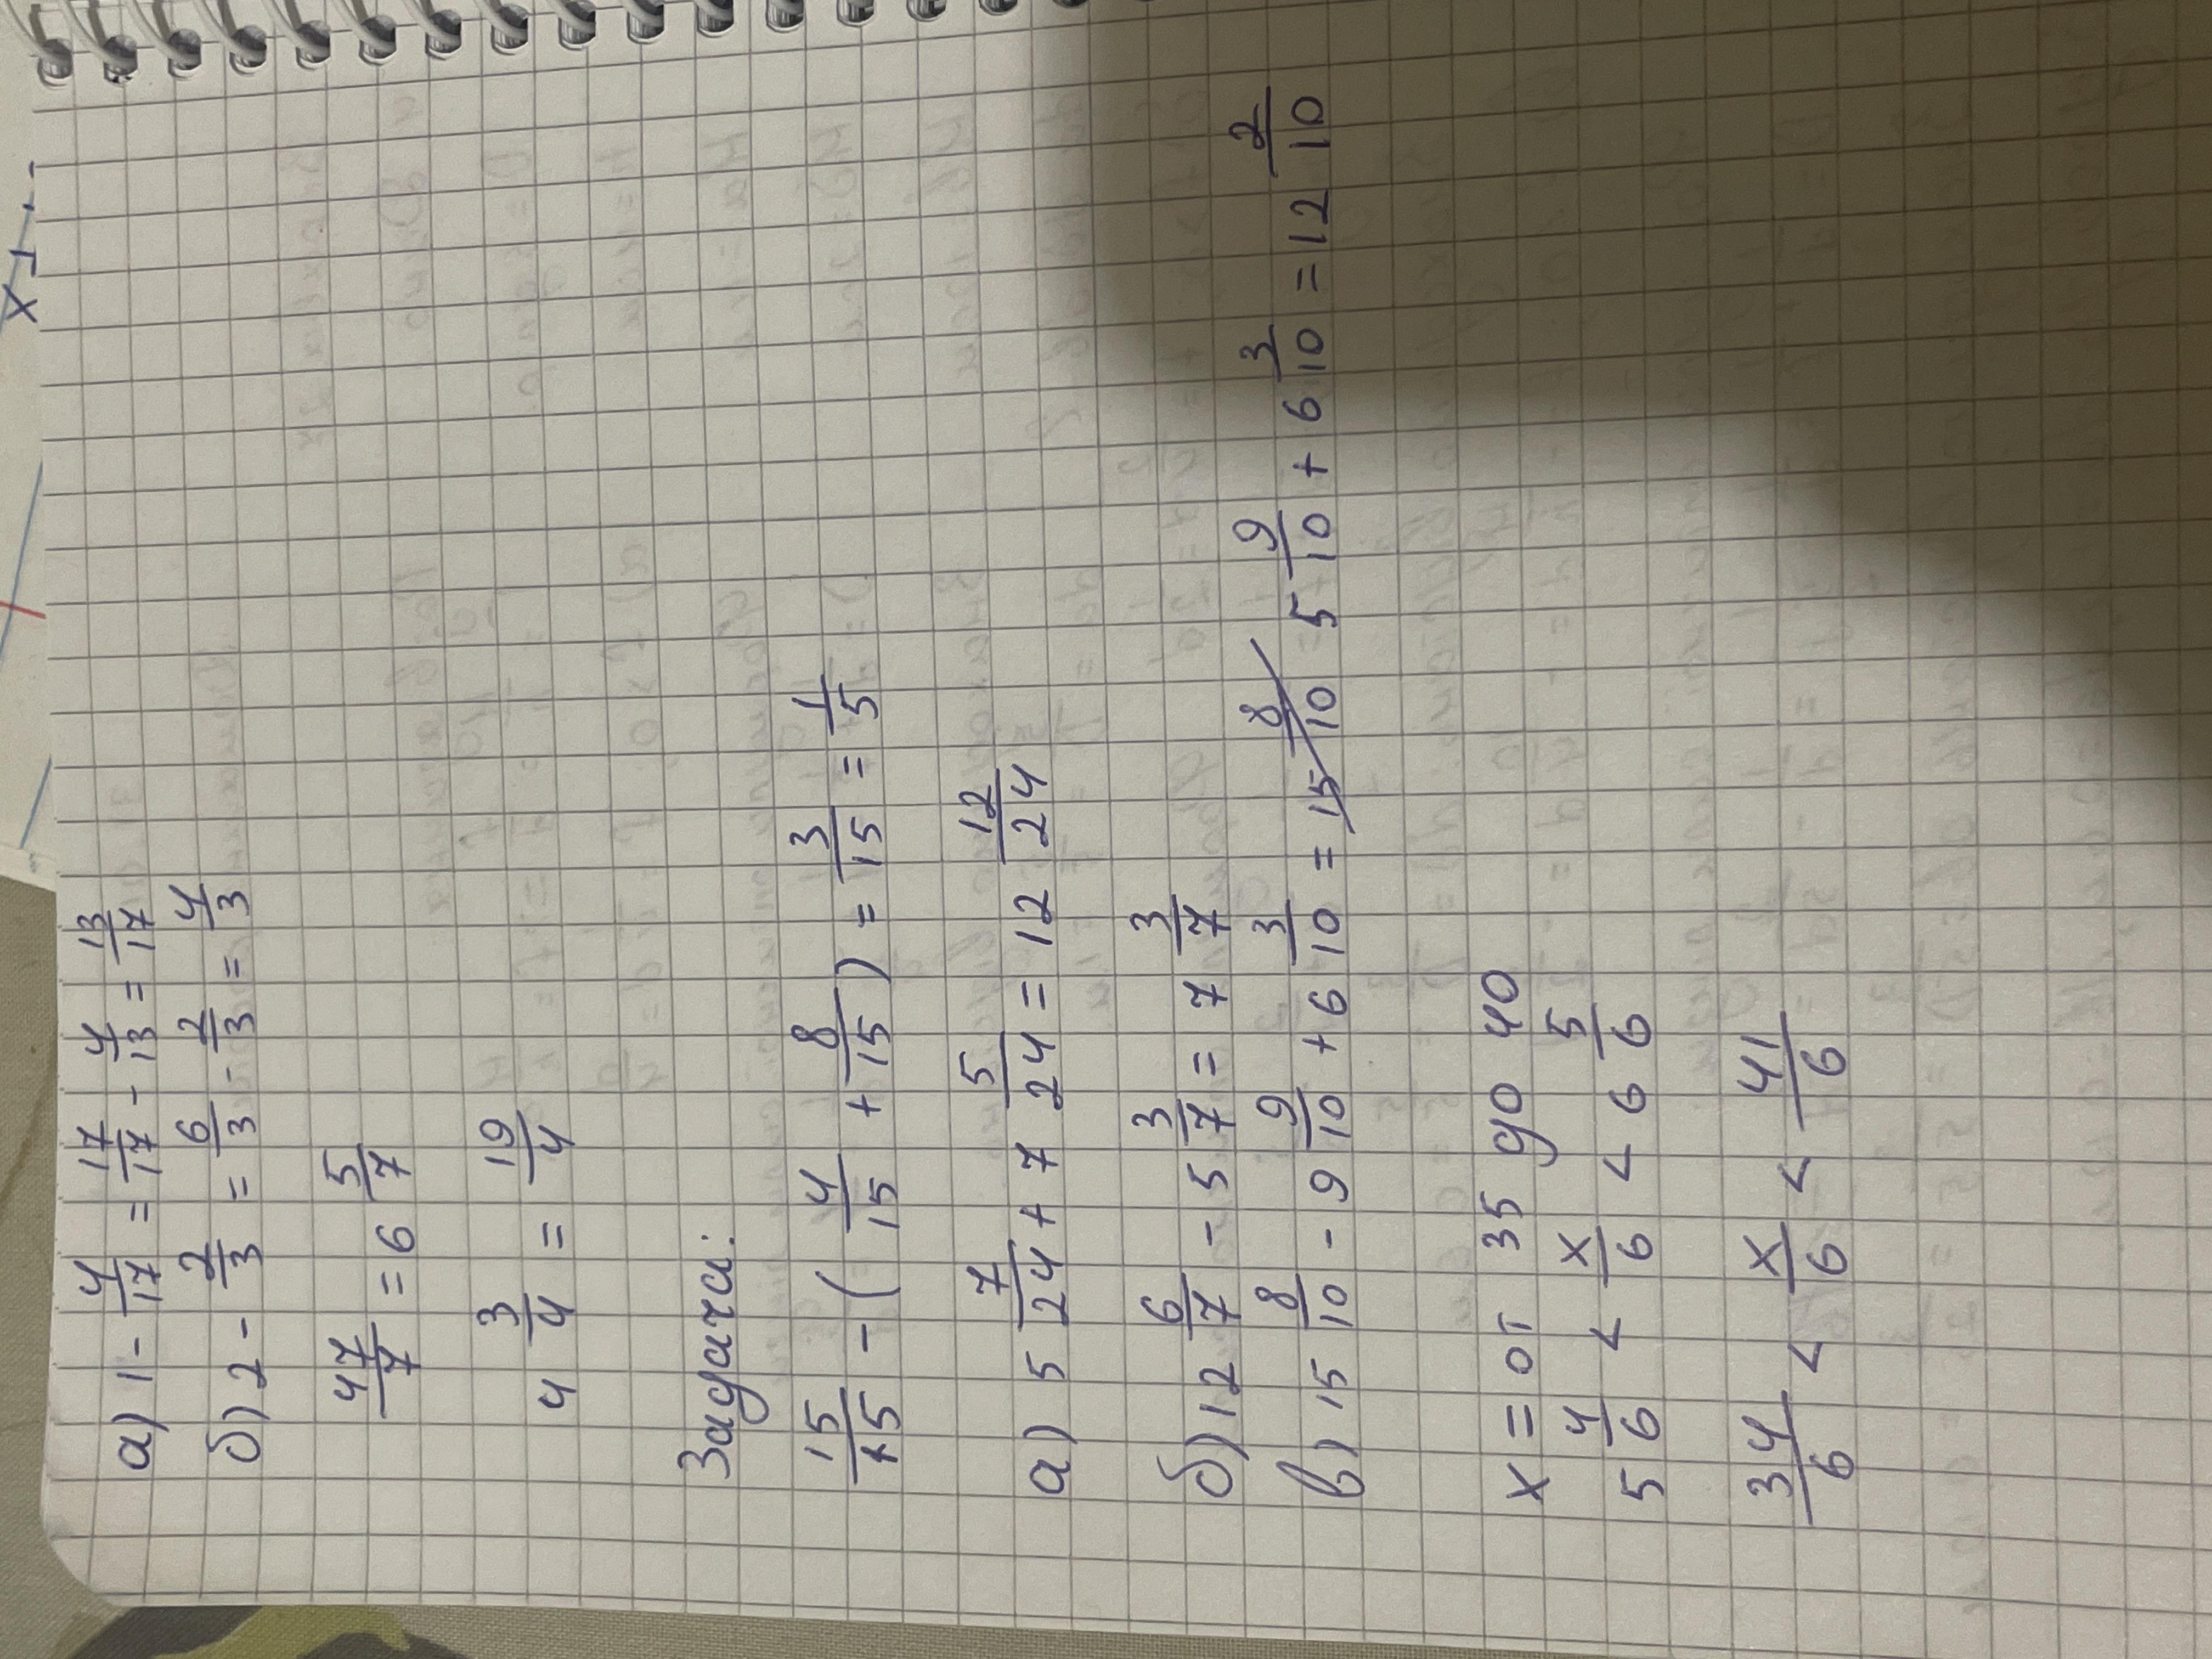 а) 1 - 4/17 = 17/17 - 4/13 = 13/17
б) 2 - 2/3 = 6/3 - 2/3 = 4/3
47/7 = 6 5/7
4 3/4 = 19/4
Задача:
15/15 - ( 4/15 + 8/15 ) = 3/15 = 1/5
а) 5 7/24 + 7 5/24 = 12 12/24
б) 12 6/7 - 5 3/7 = 7 3/7
в) 15 8/10 - 9 9/10 + 6 3/10 = 15 8/10 5 9/10 + 6 3/10 = 12 2/10
x = от 35 до 40
5 4/6 < x/6 < 6 5/6
34/6 < x/6 < 41/6